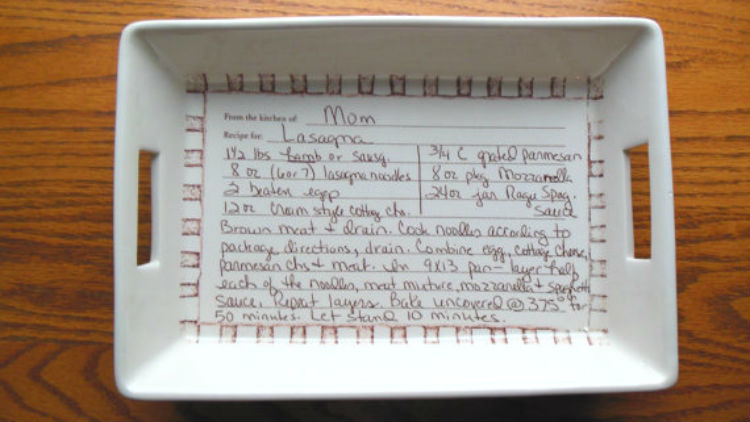 From the kitchen of: Mom
Recipe for: Lasagna
1½ lbs hamb or sausg.
8 oz (6 or 7) lasagna noodles
2 beaten eggs
12 oz Cream style cottag chs.
3/4 C grated parmesan
8 oz pkg Mozzarella
24oz jar Ragu Spag.
Sauce
Brown meat + drain. Cook noodles according to
package directions, drain. Combine egg, cottag cheese,
parmesan chs + meat. In 9x13 pan - layer half
each of the noodles, meat mixture, mozzarella + spaghetti
sauce. Repeat layers. Bake uncovered @ 375° for
50 minutes. Let stand 10 minutes.